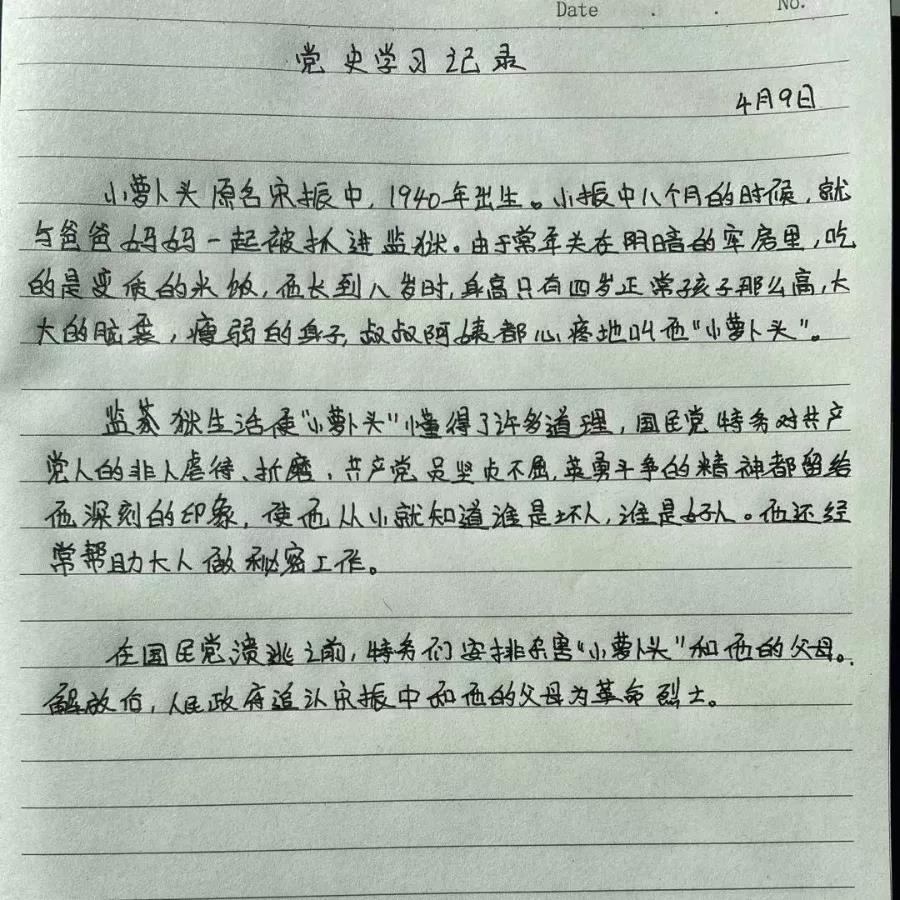 Date . . No.
党史学习记录
4月9日
小萝卜头原名宋振中，1940年出生。小振中八个月的时候，就
与爸爸妈妈一起被抓进监狱。由于常年关在阴暗的牢房里，吃
的是变质的米饭，他长到八岁时，身高只有四岁正常孩子那么高，大
大的脑袋，瘦弱的身子，叔叔阿姨都心疼地叫他“小萝卜头”。
监狱生活使“小萝卜头”懂得了许多道理，国民党特务对共产
党人的非人虐待、折磨，共产党员坚贞不屈，英勇斗争的精神都留给
他深刻的印象，使他从小就知道谁是坏人，谁是好人。他还经
常帮助大人做秘密工作。
在国民党溃逃之前，特务们安排杀害“小萝卜头”和他的父母。
解放后，人民政府追认宋振中和他的父母为革命烈士。